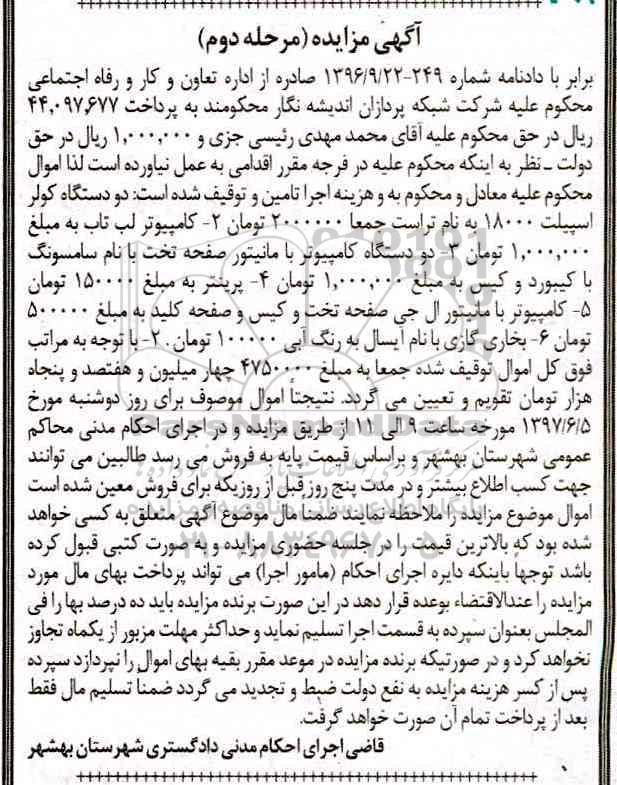 آگهی مزایده (مرحله دوم)
برابر با دادنامه شماره ۲۴۹-۱۳۹۶/۹/۲۲ صادره از اداره تعاون و کار و رفاه اجتماعی
محکوم علیه شرکت شبکه پردازان اندیشه نگار محکومند به پرداخت ۴۴,۰۹۷,۶۷۷
ریال در حق محکوم علیه آقای محمد مهدی رئیسی جزی و ۱,۰۰۰,۰۰۰ ریال در حق
دولت ـ نظر به اینکه محکوم علیه در فرجه مقرر اقدامی به عمل نیاورده است لذا اموال
محکوم علیه معادل و محکوم به و هزینه اجرا تامین و توقیف شده است: دو دستگاه کولر
اسپیلت ۱۸۰۰۰ به نام تراست جمعا ۲۰۰۰۰۰۰ تومان ۲- کامپیوتر لب تاب به مبلغ
۱,۰۰۰,۰۰۰ تومان ۳- دو دستگاه کامپیوتر با مانیتور صفحه تخت با نام سامسونگ
با کیبورد و کیس به مبلغ ۱,۰۰۰,۰۰۰ تومان ۴- پرینتر به مبلغ ۱۵۰۰۰۰ تومان
۵- کامپیوتر با مانیتور ال جی صفحه تخت و کیس و صفحه کلید به مبلغ ۵۰۰۰۰۰
تومان ۶- بخاری گازی با نام آیسال به رنگ آبی ۱۰۰۰۰۰ تومان. ۲- با توجه به مراتب
فوق کل اموال توقیف شده جمعا به مبلغ ۴۷۵۰۰۰۰ چهار میلیون و هفتصد و پنجاه
هزار تومان تقویم و تعیین می گردد. نتیجتاً اموال موصوف برای روز دوشنبه مورخ
۱۳۹۷/۶/۵ مورخه ساعت ۹ الی ۱۱ از طریق مزایده و در اجرای احکام مدنی محاکم
عمومی شهرستان بهشهر و براساس قیمت پایه به فروش می رسد طالبین می توانند
جهت کسب اطلاع بیشتر و در مدت پنج روز قبل از روزیکه برای فروش معین شده است
اموال موضوع مزایده را ملاحظه نمایند ضمناً مال موضوع آگهی متعلق به کسی خواهد
شده بود که بالاترین قیمت را در جلسه حضوری مزایده و به صورت کتبی قبول کرده
باشد توجهاً باینکه دایره اجرای احکام (مامور اجرا) می تواند پرداخت بهای مال مورد
مزایده را عندالاقتضاء بوعده قرار دهد در این صورت برنده مزایده باید ده درصد بها را فی
المجلس بعنوان سپرده به قسمت اجرا تسلیم نماید و حداکثر مهلت مزبور از یکماه تجاوز
نخواهد کرد و در صورتیکه برنده مزایده در موعد مقرر بقیه بهای اموال را نپردازد سپرده
پس از کسر هزینه مزایده به نفع دولت ضبط و تجدید می گردد ضمناً تسلیم مال فقط
بعد از پرداخت تمام آن صورت خواهد گرفت.
قاضی اجرای احکام مدنی دادگستری شهرستان بهشهر